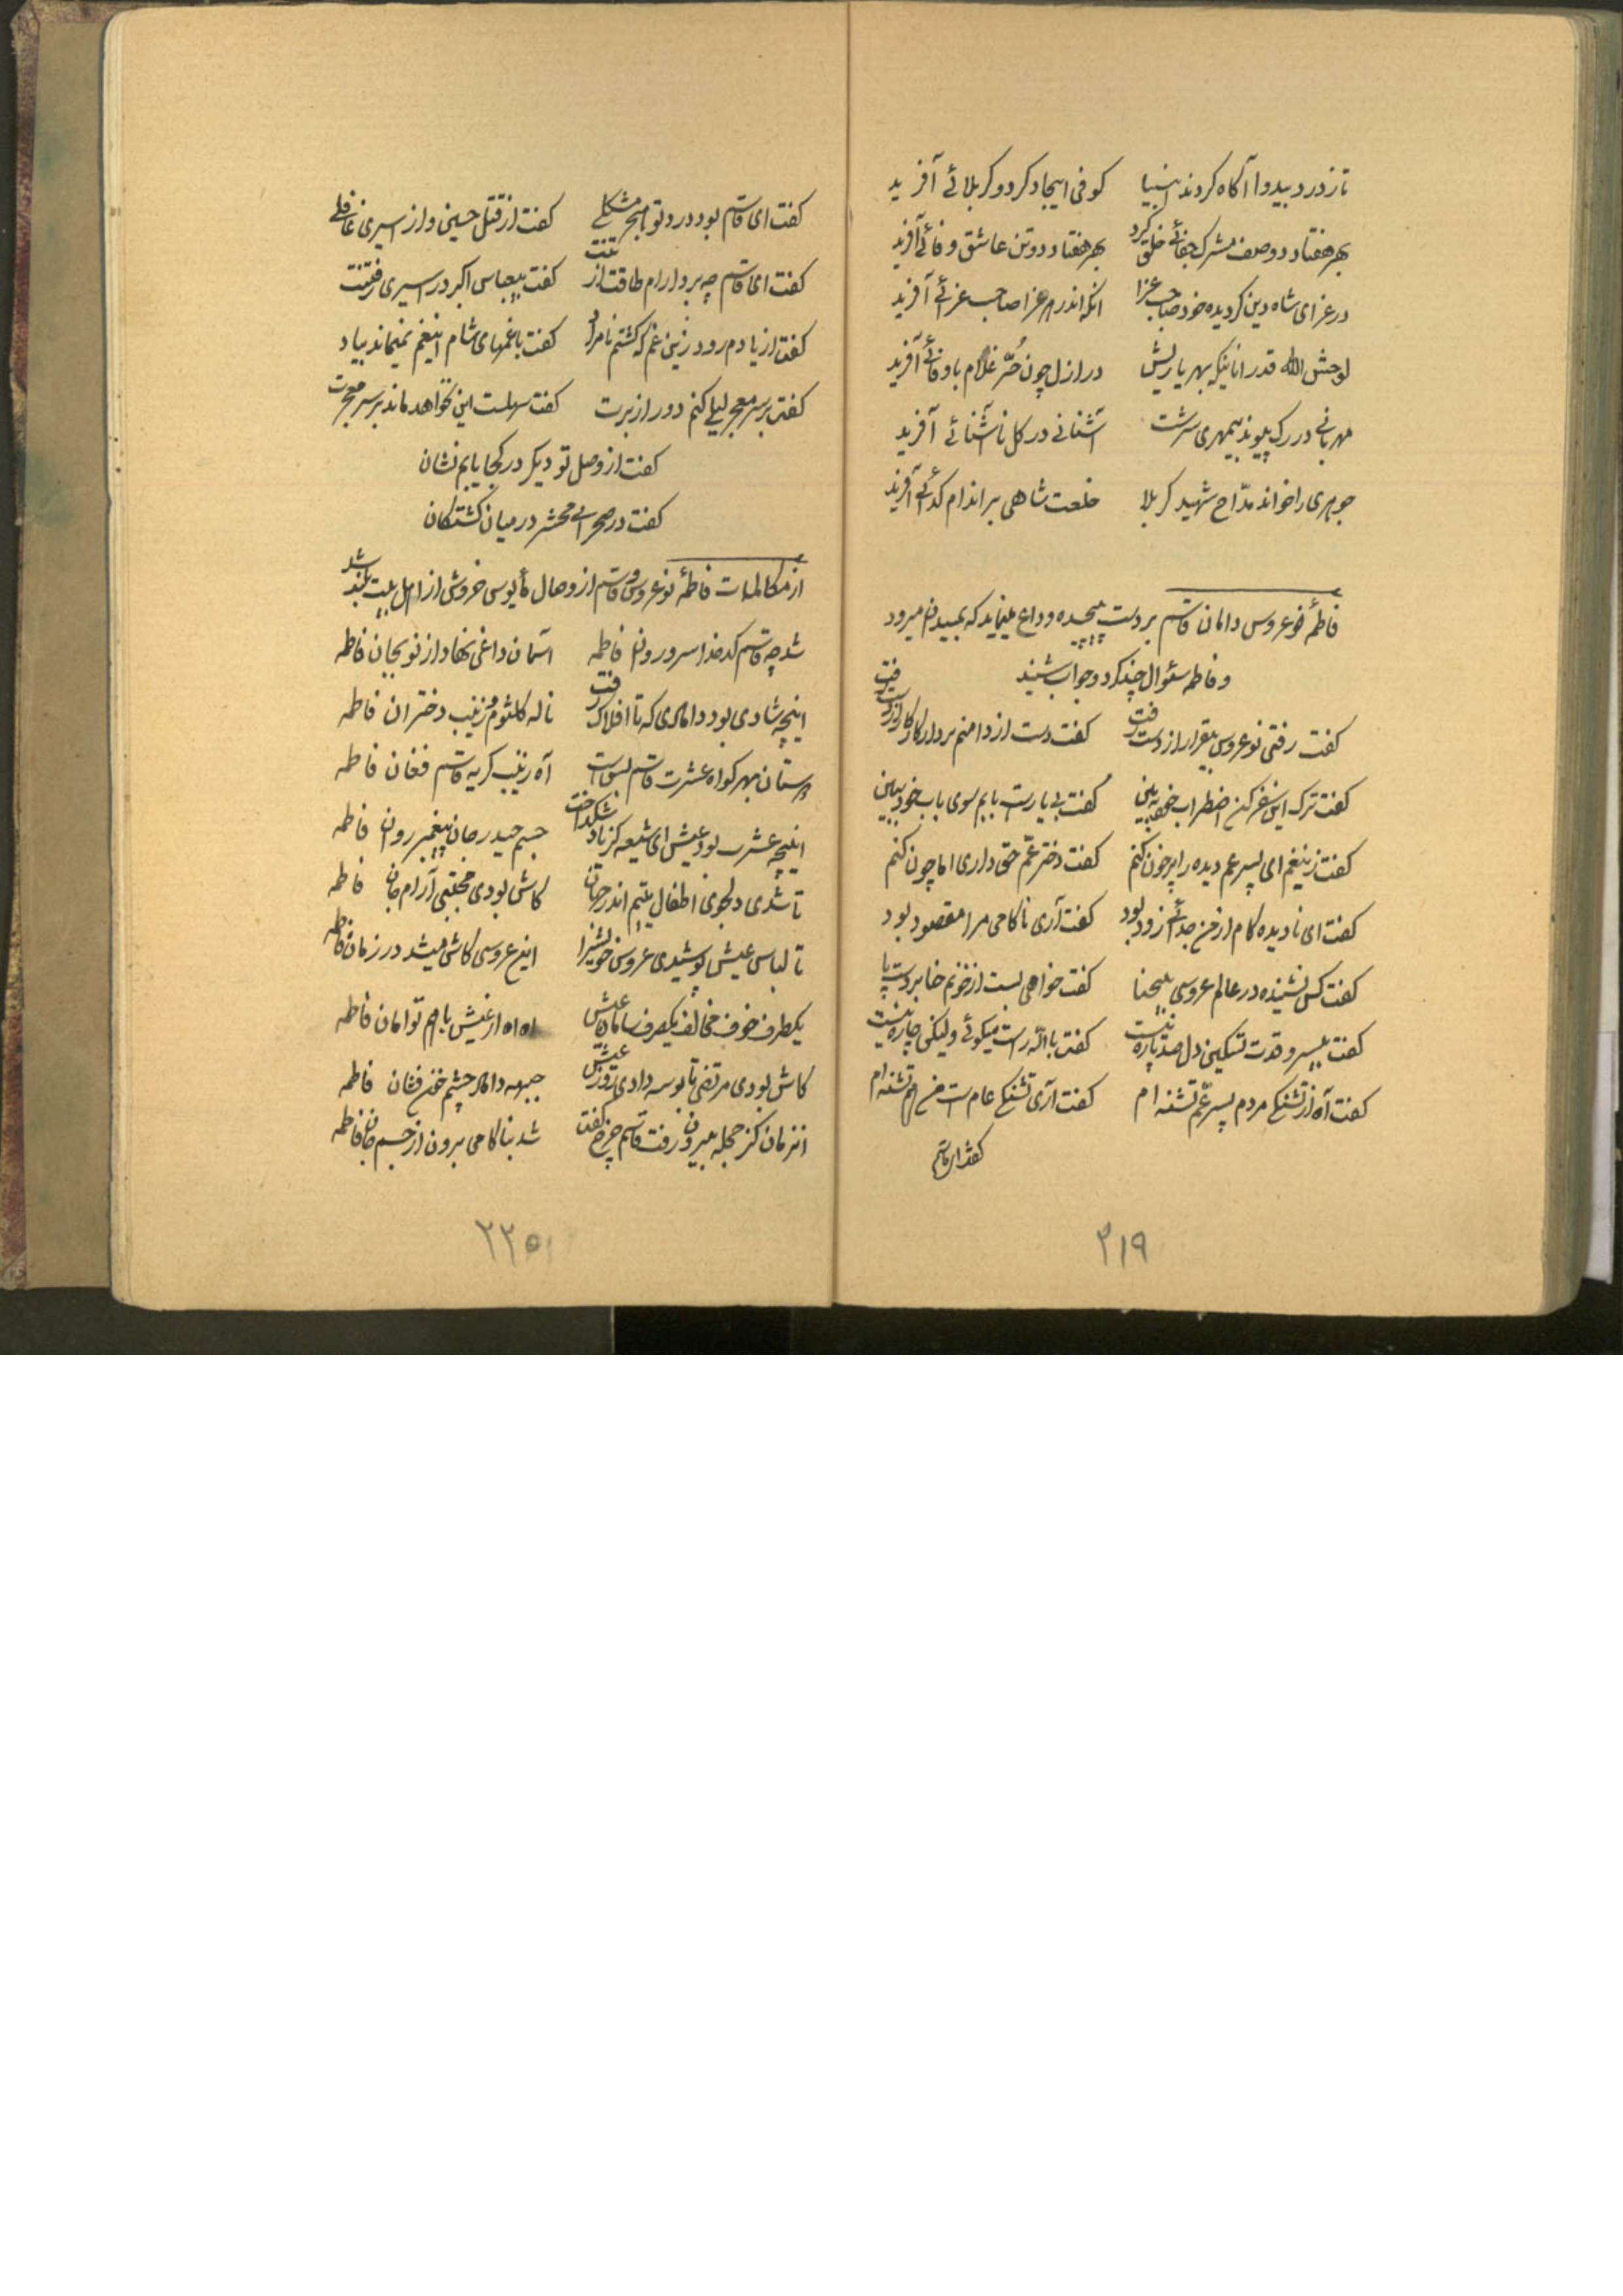 تا ز درد بیدوا آگاه کردند انبیا کوفی ایجاد کرد و کربلائی آفرید
بهر هفتاد دو صف مشرک جفائی خلق کرد بهر هفتاد دو تن عاشق وفائی آفرید
در عزای شاه دین گردیده خود صاحب عزا آنکه اندر هر عزا صاحب عزائی آفرید
لوحش الله قدر آنانیکه بهر یاریش در ازل چون حُرّ غلام باوفائی آفرید
مهربانی در رگ پیوند بیمهری سرشت آشنائی در گل ناآشنائی آفرید
جوهری را خواند مدّاح شهید کربلا خلعت شاهی بر اندام گدائی آفرید
فاطمهٔ نوعروس دامان قاسم بر دست پیچیده وداع مینماید که بمیدان میرود
و فاطمه سئوال چند کرد و جواب شنید
گفت رفتی نوعروس بیقرار از دست رفت گفت دست از دامنم بردار کار از دست رفت
گفت ترک این سفر کن اضطراب خود ببین گفت بی یاریت بابم سوی باب خود ببین
گفت زینغم ای پسر عم دیده را پر خون کنم گفت دختر عمّ حق داری اما چون کنم
گفت ای نادیده کام از من جدائی زود بود گفت آری ناکامی مرا مقصود بود
گفت کس نشنیده در عالم عروسی بیحنا گفت خواهی بست از خونم حنا بر دست و پا
گفت بیسر و قدت تسکین دل صد پاره نیست گفت بالله راست میگوئی ولیکن چاره نیست
گفت آه از تشنگی مردم پسر عمّ تشنه ام گفت آری تشنگی عام است من هم تشنه ام
گفت ای قاسم
۲۱۹
گفت ای قاسم بود درد تو با هجر مشکلی گفت از قتل حسین و از اسیری غافلی
گفت ای قاسم چه بردارم طاقت از تنت گفت بیعباس اکبر در اسیری رفتنت
گفت از یادم رود زین غم که گشتم نامراد گفت با غمهای شام اینغم نمیماند بیاد
گفت بر سر معجر نیلی کنم دور از برت گفت سهلست این نخواهد ماند بر سر معجرت
گفت از وصل تو دیگر در کجا یابم نشان
گفت در صحرای محشر در میان کشتگان
از مکالمات فاطمهٔ نوعروس و قاسم از وصال مأیوس خروش از اهل بیت بلند شد
شد چه قاسم کدخدا سرو روان فاطمه آسمان داغی نهاد از نو بجان فاطمه
اینچه شادی بود دامادی که تا افلاک رفت ناله کلثوم و زینب دختران فاطمه
آه زینب گریه قاسم فغان فاطمه
اینچه عشرت بود عیش ای شیعه کز باد جسم حیدر جان پیغمبر روان فاطمه
تا شدی دلجوی اطفال یتیم اندر جهان کاش بودی مجتبی آرام جان فاطمه
تا لباس عیش پوشیدی عروس خویش را این عروسی کاش میشد در زمان فاطمه
یکطرف خوف مخالف یکطرف سامان عیش اه اه از عیش با هم توامان فاطمه
کاش بودی مرتضی تا بوسه دادی روز عیش جبهه داماد چشم خون فشان فاطمه
انزمان کز حجله بیرون رفت قاسم چرخ گفت شد بناکامی برون از جسم جان فاطمه
۲۲۰